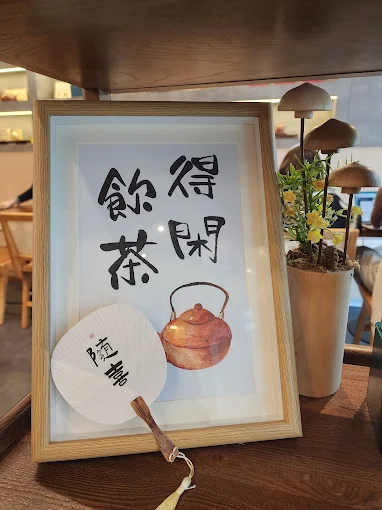 得閑
飲茶
隨喜